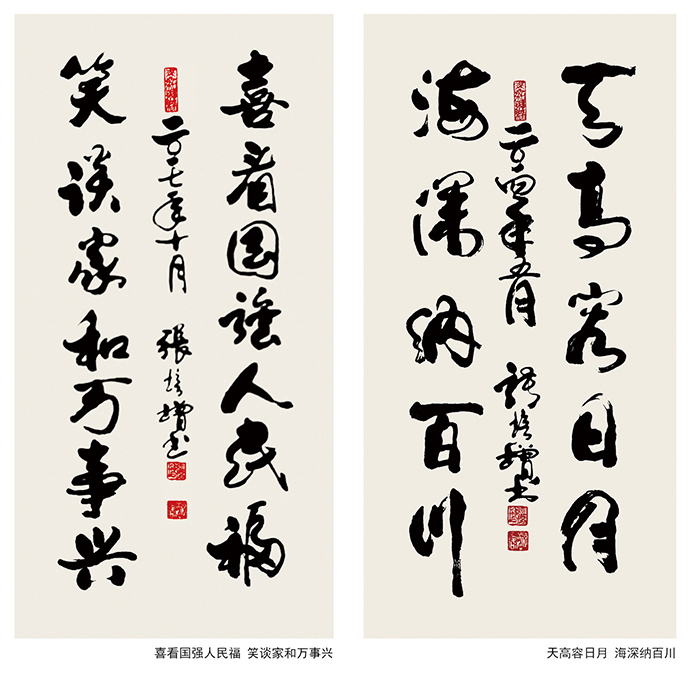 喜看国强人民福
笑谈家和万事兴
二〇一七年十月 張培增书
喜看国强人民福 笑谈家和万事兴
天高容日月
海深纳百川
二〇一四年五月 張培增书
天高容日月 海深纳百川